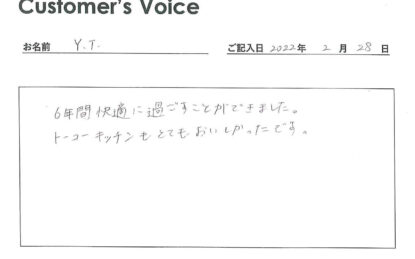 Customer's Voice
お名前 Y.T. ご記入日 2022年 2月 28日
6年間快適に過ごすことができました。
トーコーキッチンもとてもおいしかったです。